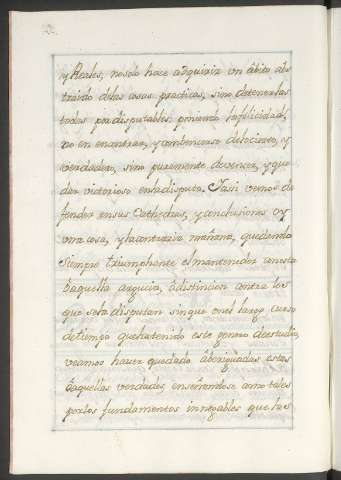 y Reales, nosolo hace adquirir un abito abs
traido delas cosas practicas, sino detenerlas
todas por disputables; poniendo lafelicidad,
no en encontrar, y combencerse delocierto, y
verdadero, sino puramente devencer, y que
dar victorioso enladisputa. Jasi vemos de
fender ensus Cathedras, y conclusiones oy
vna cosa, y lacontraria mañana, quedando
siempre triumphante el mantenedor conesta
o aquella argucia, o distincion contra los
que sela disputan sin que en el largo curso
detiempo que hatenido este genero de estudio,
veamos haver quedado aberiguadas estas
o aquellas verdades, enseñandose como tales
por los fundamentos innegables que las